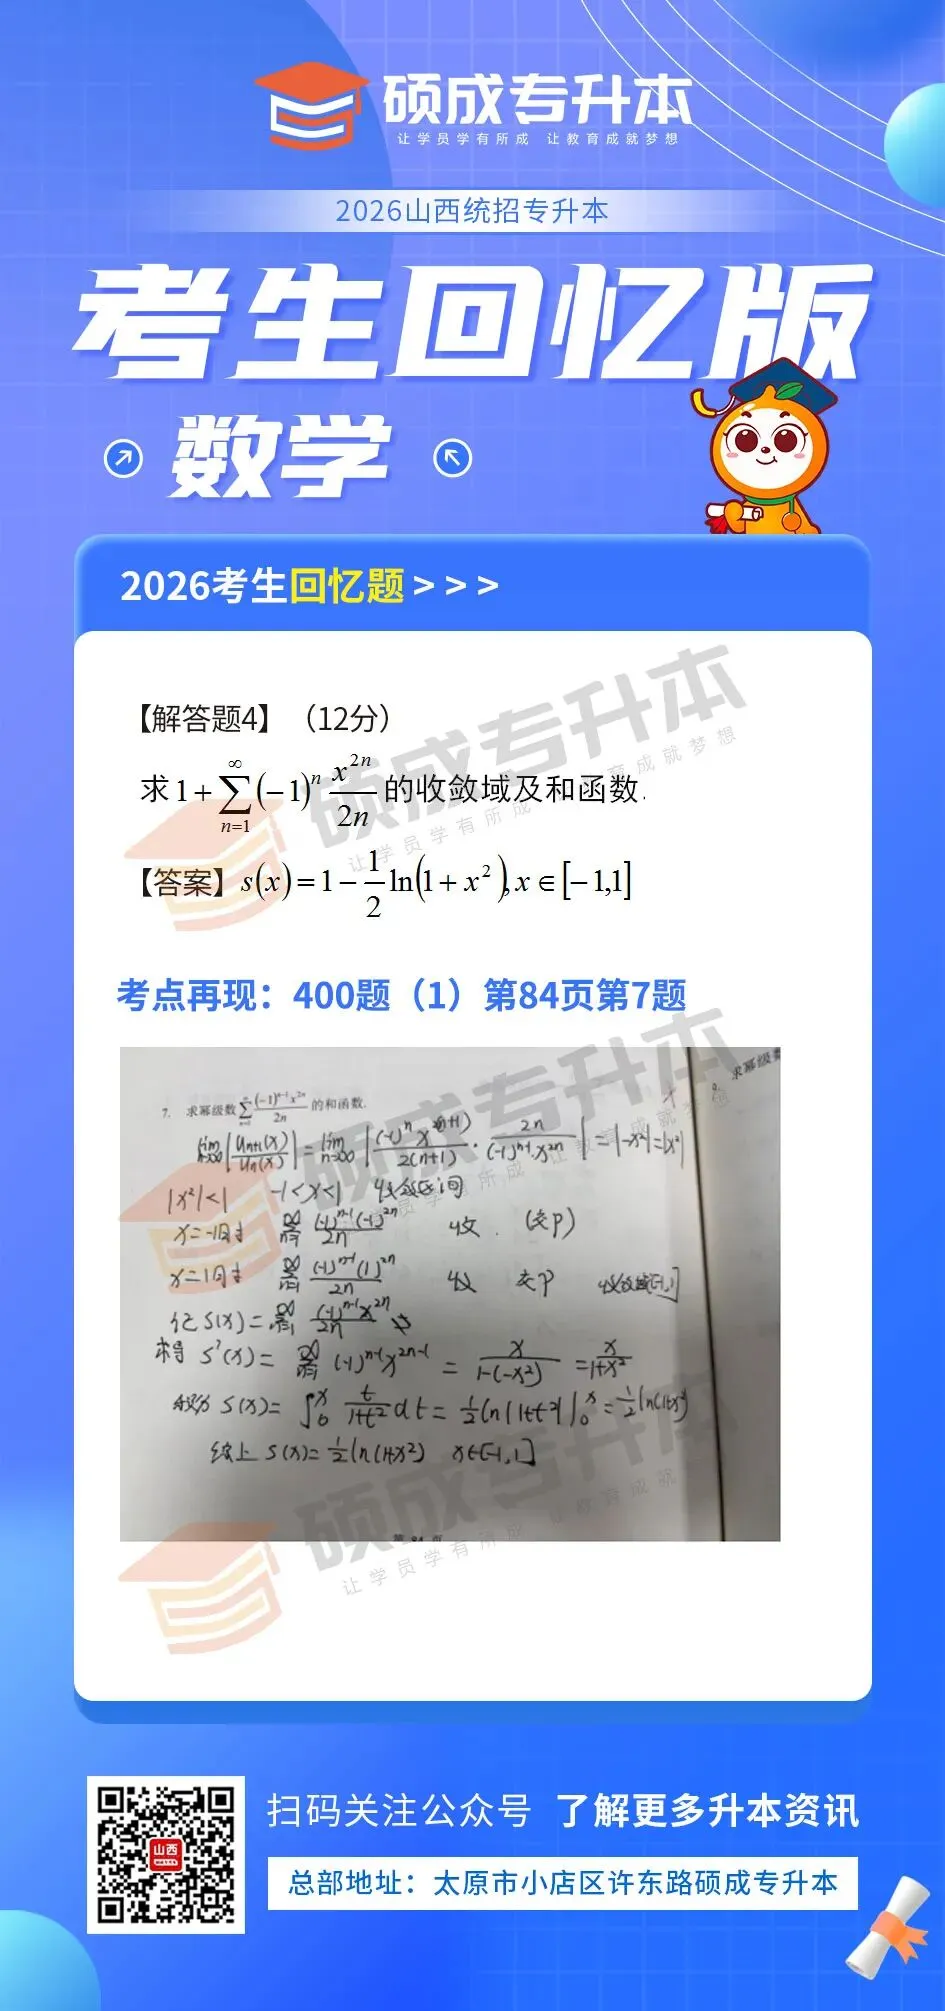 硕成专升本
让学员学有所成 让教育成就梦想
2026山西统招专升本
考生回忆版
数学
2026考生回忆题>>>
【解答题4】（12分）
求1+∑_{n=1}^{∞}(-1)^n x^{2n}/2n 的收敛域及和函数.
【答案】s(x)=1-1/2 ln(1+x²),x∈[-1,1]
考点再现：400题（1）第84页第7题
求幂级数
7. 求幂级数∑_{n=1}^{∞} (-1)^{n-1}x^{2n}/2n 的和函数.
lim_{n→∞}|u_{n+1}(x)/u_n(x)|=lim_{n→∞}|(-1)^n x^{2(n+1)}/2(n+1)·2n/(-1)^{n-1}·x^{2n}|=|-x²|=|x²|
|x²|<1 -1<x<1 收敛区间
x=-1时 ∑_{n=1}^{∞} (-1)^{n-1}(-1)^{2n}/2n 收.(交p)
x=1时 ∑_{n=1}^{∞} (-1)^{n-1}(1)^{2n}/2n 收 交p 收敛域[-1,1]
记S(x)=∑_{n=1}^{∞} (-1)^{n-1}x^{2n}/2n
求得 S'(x)=∑_{n=1}^{∞}(-1)^{n-1}x^{2n-1}=x/1-(-x²)=x/1+x²
积分 S(x)=∫_0^x t/1+t² dt=1/2 ln|1+t²||_0^x=1/2 ln(1+x²)
综上 S(x)=1/2 ln(1+x²) x∈[-1,1]
第 84 页
硕成专升本
让学员学有所成 让教育成就梦想
山西
扫码关注公众号 了解更多升本资讯
总部地址：太原市小店区许东路硕成专升本